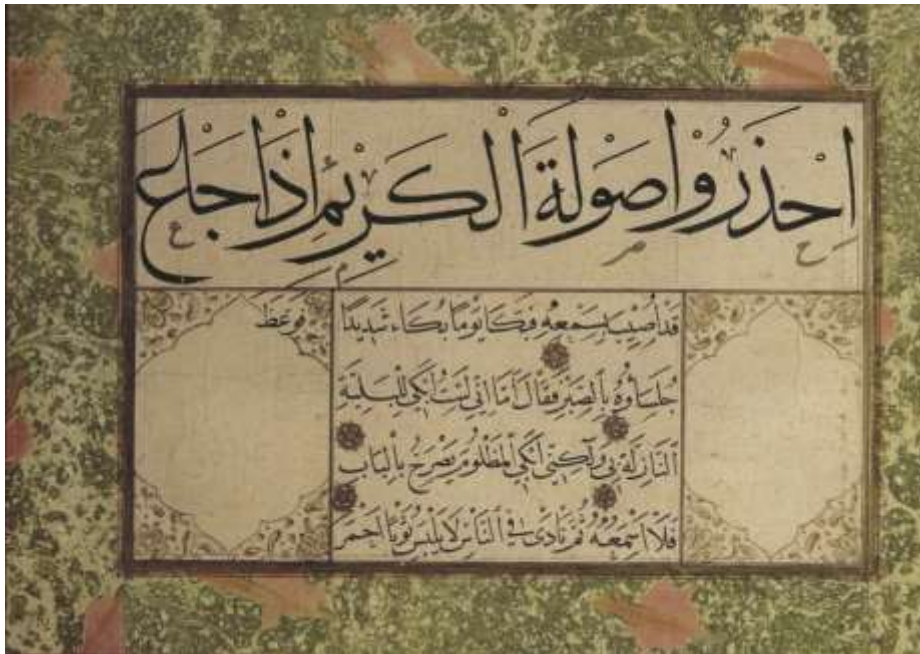 احْذَرُوا صَوْلَةَ الْكَرِيْمِ اِذَا جَاعَ
قَد اُصِيْبَ بِسَمْعِهِ فَبَكَا يَوْمًا بُكَاءً شَدِيْدًا فَوَعَظَ
جُلَسَاؤُهُ بِالصَّبْرِ فَقَالَ اَمَا اِنِّى لَسْتُ اَبْكِى لِلْبَلِيَّةِ
النَّازِلَةِ بِى وَلٰكِنِّى اَبْكِى لِمَظْلُوْمٍ يَصْرَخُ بِالْبَابِ
فَلَا اَسْمَعُهُ ثُمَّ نَادٰى فِى النَّاسِ لَا يَلْبَسُ ثَوْبًا اَحْمَرَ